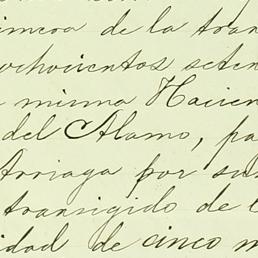 imera de la tran
ochocientos seten
a misma Hacien
del Alamo, pa
Arriaga por su
transigido de l
idad de cinco m